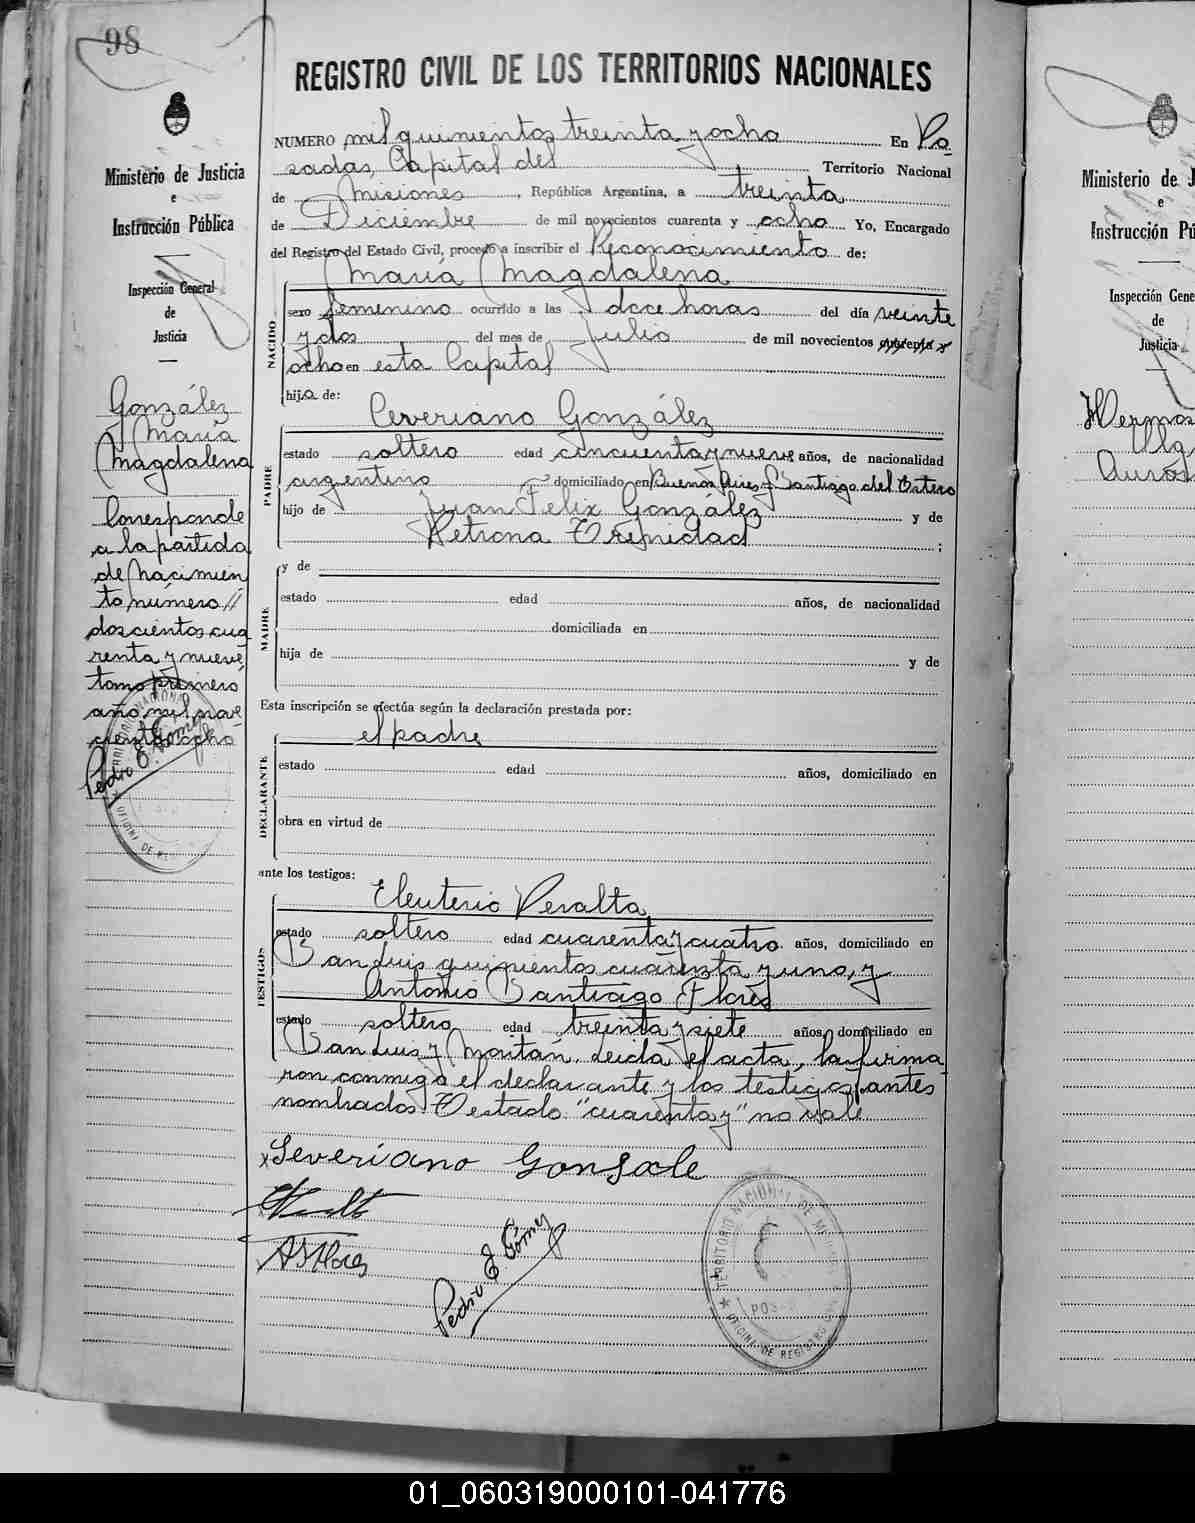 98
REGISTRO CIVIL DE LOS TERRITORIOS NACIONALES
Ministerio de Justicia
e
Instrucción Pública
Inspección General
de
Justicia
González
María
Magdalena
Corresponde
a la partida
de nacimien
to número//
doscientos cua
renta y nueve
tomo primero
año mil nove
cientos ocho
Pedro E. Gómez
NUMERO mil quinientos treinta y ocho En Po
sadas, Capital del Territorio Nacional
de Misiones, República Argentina, a treinta
de Diciembre de mil novecientos cuarenta y ocho Yo, Encargado
del Registro del Estado Civil, procedo a inscribir el Reconocimiento de:
María Magdalena
NACIDO
sexo femenino ocurrido a las doce horas del día veinte
y dos del mes de Julio de mil novecientos cuarenta y
ocho en esta Capital
hija de:
Ceveriano González
PADRE
estado soltero edad cincuenta y nueve años, de nacionalidad
argentino domiciliado en Buenos Aires y Santiago del Estero
hijo de Juan Felix González y de
Petrona Trejnidad ;
MADRE
y de
estado edad años, de nacionalidad
domiciliada en
hija de y de
Esta inscripción se efectúa según la declaración prestada por:
el padre
DECLARANTE
estado edad años, domiciliado en
obra en virtud de
ante los testigos:
TESTIGOS
Eleuterio Peralta
estado soltero edad cuarenta y cuatro años, domiciliado en
San Luis quinientos cuarenta y uno, y
Antonio Santiago Flores
estado soltero edad treinta y siete años, domiciliado en
San Luis y Moitán. Leida el acta, la firma
ron conmigo el declarante y los testigos antes
nombrados. Testado "cuarenta y" no vale
x Severiano Gonsale
A S Flores
Pedro E. Gómez
TERRITORIO NACIONAL DE MISIONES
OFICINA DE REGISTRO CIVIL
Ministerio de J
e
Instrucción Pú
Inspección Gene
de
Justicia
Hermos
Olg
Auror
01_060319000101-041776